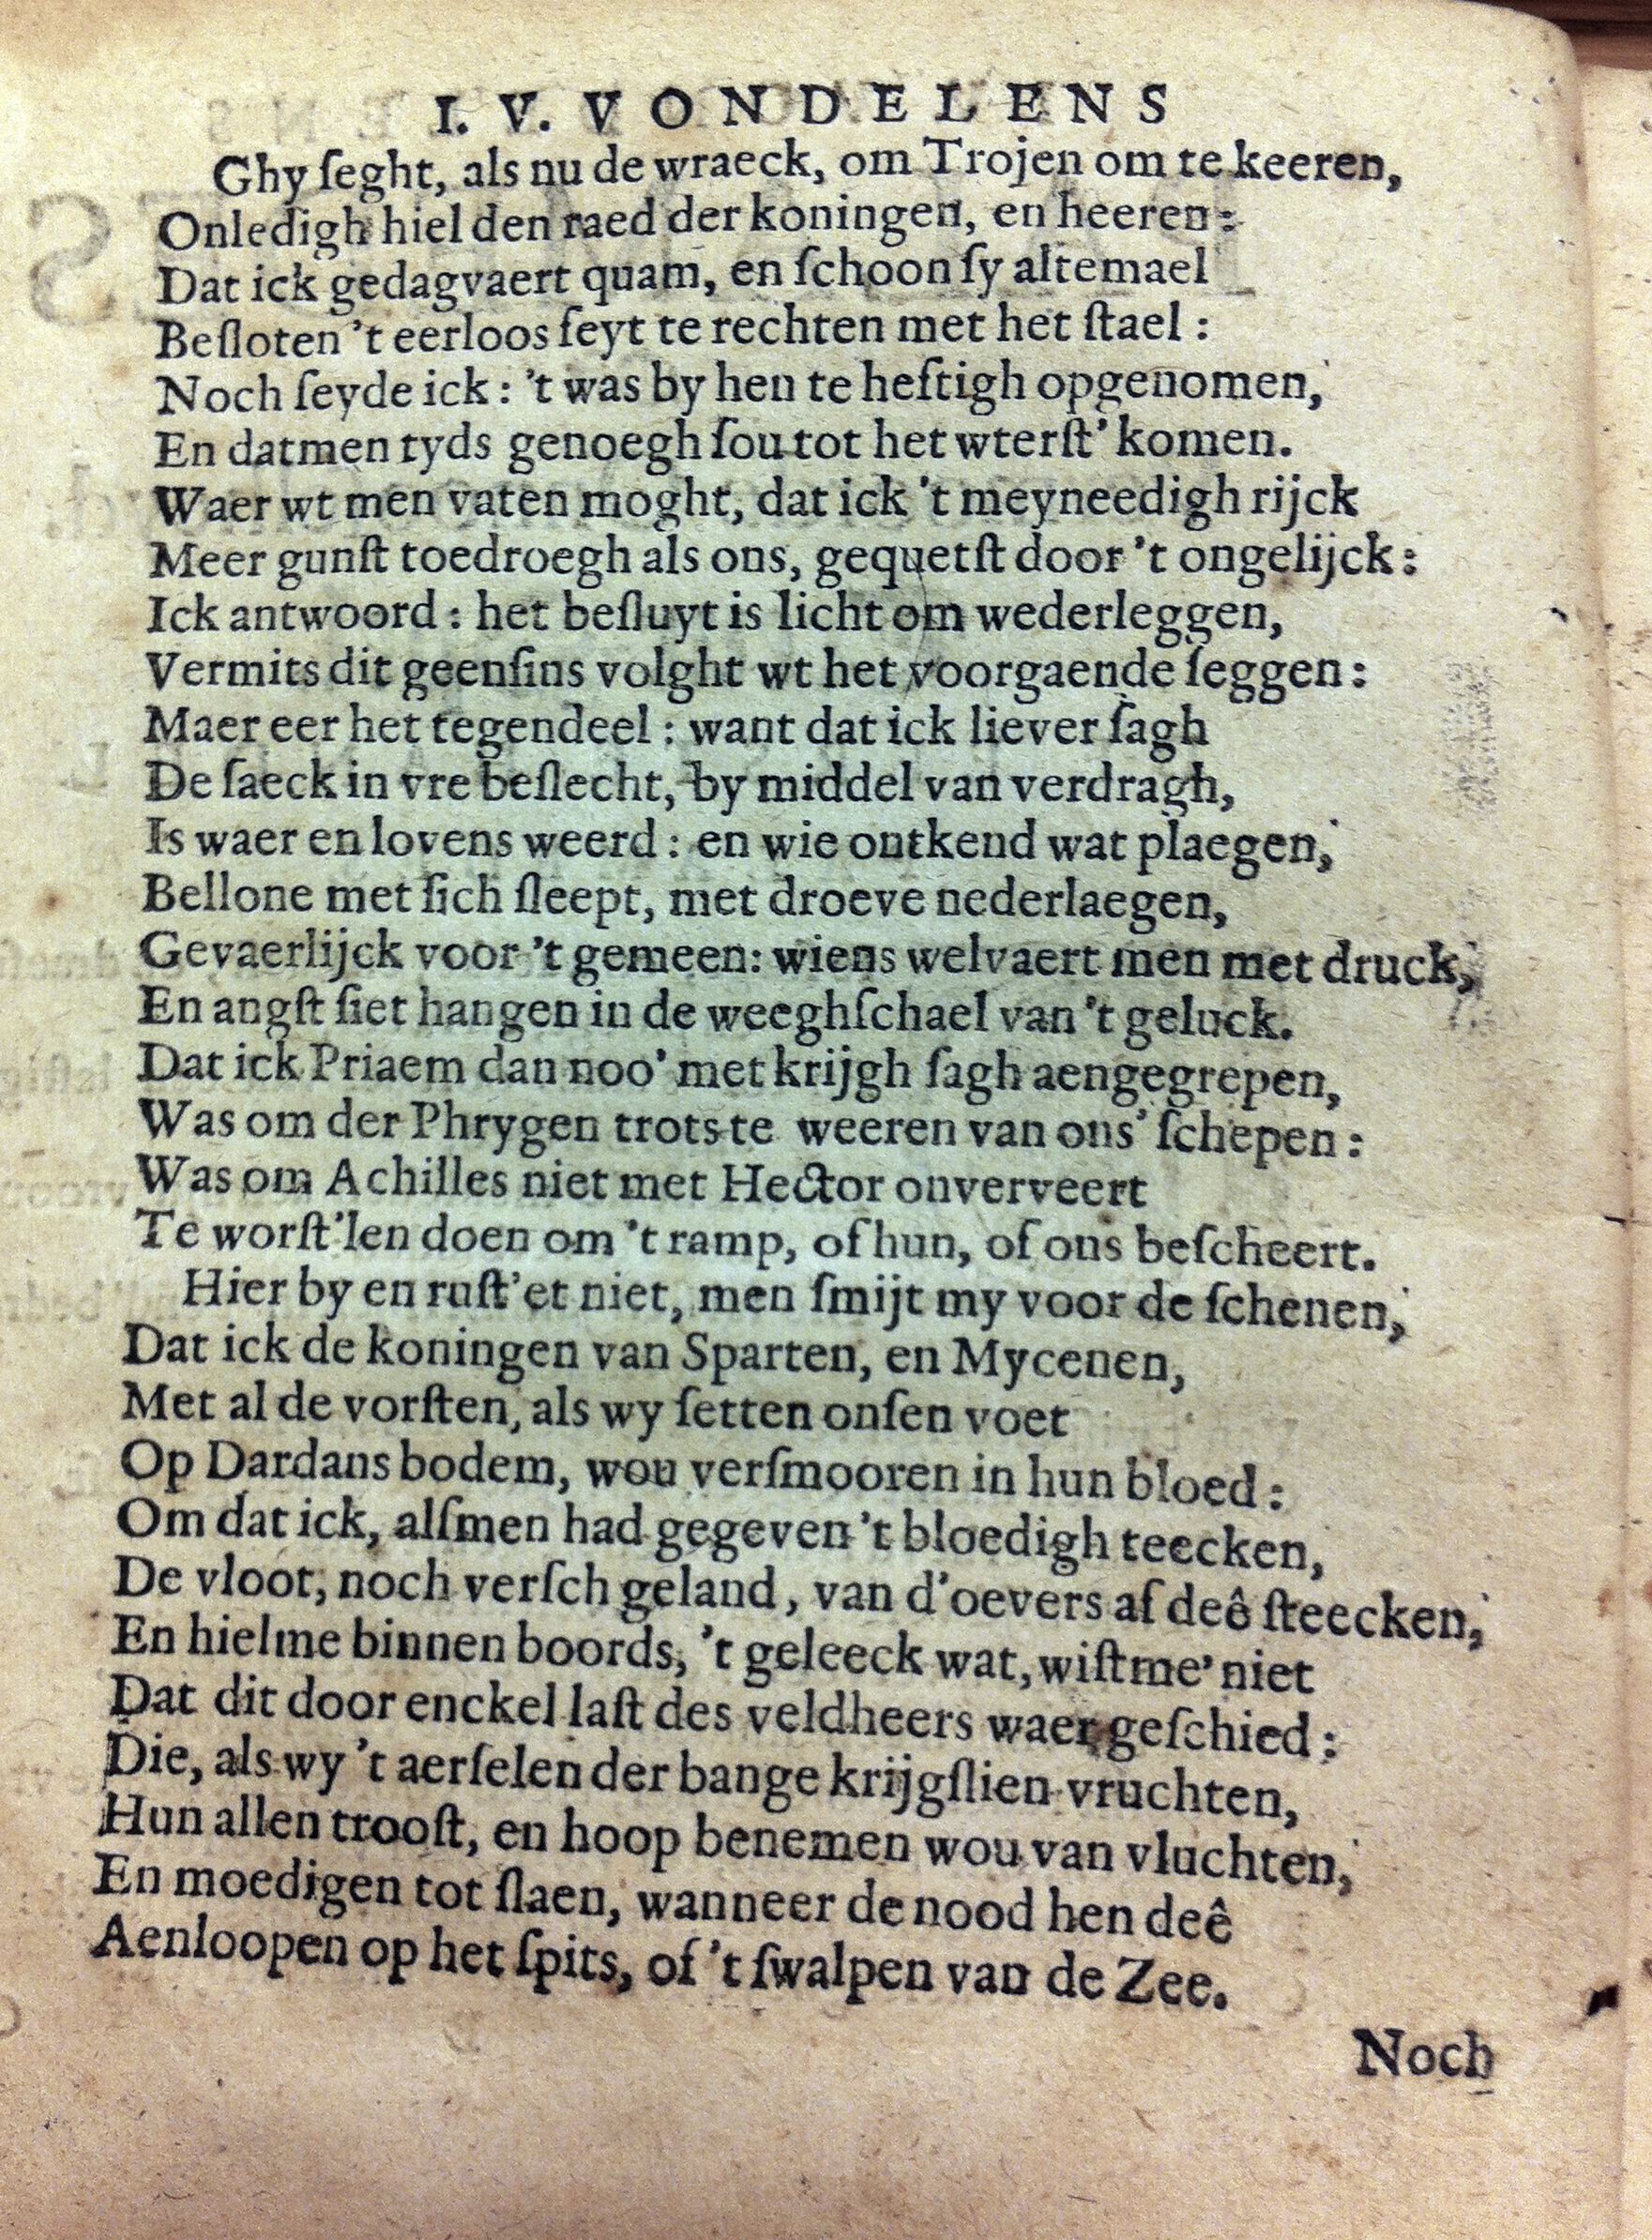 I. V. VONDELENS
Ghy ſeght, als nu de wraeck, om Trojen om te keeren,
Onledigh hiel den raed der koningen, en heeren:
Dat ick gedagvaert quam, en ſchoon ſy altemael
Beſloten 't eerloos feyt te rechten met het ſtael:
Noch ſeyde ick: 't was by hen te heftigh opgenomen,
En datmen tyds genoegh ſou tot het wterſt' komen.
Waer wt men vaten moght, dat ick 't meyneedigh rijck
Meer gunſt toedroegh als ons, gequetſt door 't ongelijck:
Ick antwoord: het beſluyt is licht om wederleggen,
Vermits dit geenſins volght wt het voorgaende ſeggen:
Maer eer het tegendeel: want dat ick liever ſagh
De ſaeck in vre beſlecht, by middel van verdragh,
Is waer en lovens weerd: en wie ontkend wat plaegen,
Bellone met ſich ſleept, met droeve nederlaegen,
Gevaerlijck voor 't gemeen: wiens welvaert men met druck,
En angſt ſiet hangen in de weeghſchael van 't geluck.
Dat ick Priaem dan noo' met krijgh ſagh aengegrepen,
Was om der Phrygen trots te weeren van ons' ſchepen:
Was om Achilles niet met Hector onverveert
Te worſt'len doen om 't ramp, of hun, of ons beſcheert.
Hier by en ruſt'et niet, men ſmijt my voor de ſchenen,
Dat ick de koningen van Sparten, en Mycenen,
Met al de vorſten, als wy ſetten onſen voet
Op Dardans bodem, wou verſmooren in hun bloed:
Om dat ick, alſmen had gegeven 't bloedigh teecken,
De vloot, noch verſch geland, van d'oevers af deê ſteecken,
En hielme binnen boords, 't geleeck wat, wiſtme' niet
Dat dit door enckel laſt des veldheers waer geſchied:
Die, als wy 't aerſelen der bange krijgſlien vruchten,
Hun allen trooſt, en hoop benemen wou van vluchten,
En moedigen tot ſlaen, wanneer de nood hen deê
Aenloopen op het ſpits, of 't ſwalpen van de Zee.
Noch